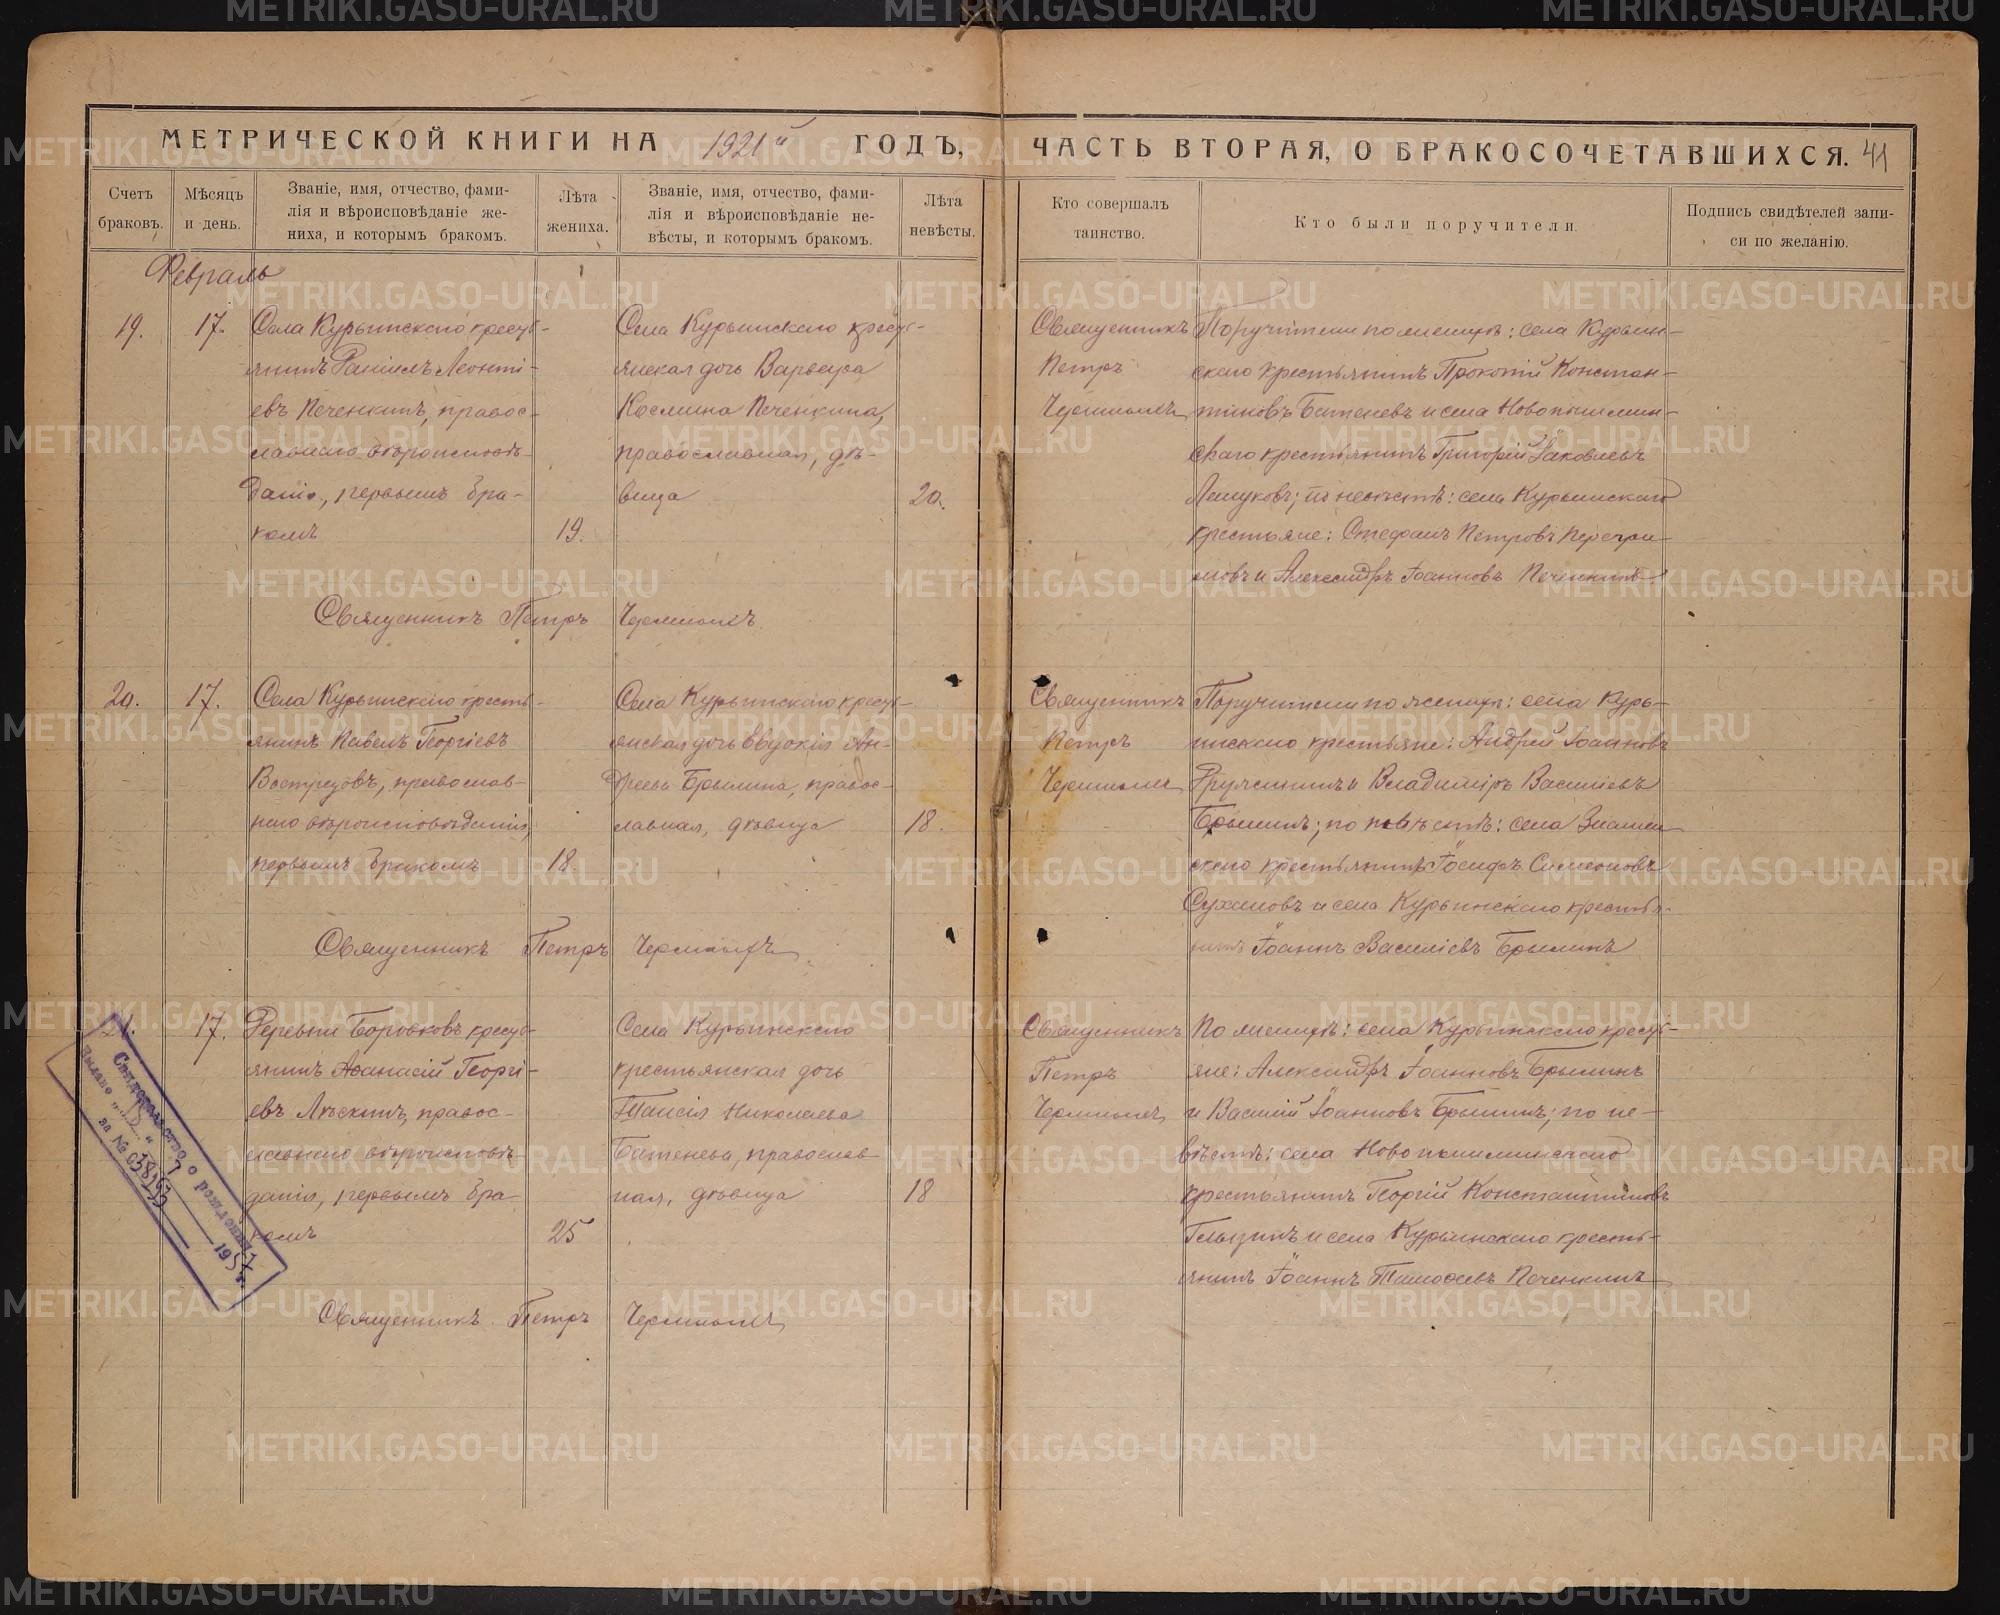 МЕТРИЧЕСКОЙ КНИГИ НА 1921й ГОДЪ,
ЧАСТЬ ВТОРАЯ, О БРАКОСОЧЕТАВШИХСЯ. 41
Счетъ браковъ.
Мѣсяцъ и день.
Званіе, имя, отчество, фами-
лія и вѣроисповѣданіе же-
ниха, и которымъ бракомъ.
Лѣта
жениха.
Званіе, имя, отчество, фами-
лія и вѣроисповѣданіе не-
вѣсты, и которымъ бракомъ.
Лѣта
невѣсты.
Кто совершалъ
таинство.
Кто были поручители.
Подпись свидѣтелей запи-
си по желанію.
Февраль
19.
17.
Села Курьинскаго кресть-
янинъ Даніилъ Леонті-
евъ Печенкинъ, правос-
лавнаго вѣроисповѣ-
данія, первымъ бра-
комъ
19.
Села Курьинскаго кресть-
янская дочь Варвара
Косьмина Печенкина,
православная, дѣ-
вица
20.
Священникъ
Петръ
Поручители по женихѣ: села Курьин-
скаго крестьянинъ Прокопій Констан-
тиновъ Батеневъ и села Новопышмин-
скаго крестьянинъ Григорій Іаковлевъ
по невѣстѣ: села Курьинскаго
крестьяне: Стефанъ Петровъ
и Александръ Іоанновъ Печенкинъ
Священникъ Петръ
20.
17.
Села Курьинскаго кресть-
янинъ Павелъ Георгіевъ
Востревовъ, православ-
наго вѣроисповѣданія,
первымъ бракомъ
18.
Села Курьинскаго кресть-
янская дочь Евдокія Ан-
дреева Брылина, правос-
лавная, дѣвица
18.
Священникъ
Петръ
Поручители по женихѣ: села Курь-
инскаго крестьяне: Андрей Іоанновъ
Дружининъ и Владиміръ Василіевъ
Брылинъ; по невѣстѣ: села Знамен
скаго крестьянинъ Іосифъ Симеоновъ
Сухановъ и села Курьинскаго крестья-
нинъ Іоаннъ Василіевъ Брылинъ
Священникъ Петръ
21.
17.
Деревни Боровковъ кресть-
янинъ Аѳанасій Георгі-
евъ Лѣскинъ, правос-
лавнаго вѣроисповѣ-
данія, первымъ бра-
комъ
25
Села Курьинскаго
крестьянская дочь
Таисія Николаева
Батенева, православ-
ная, дѣвица
18
Священникъ
Петръ
По женихѣ: села Курьинскаго кресть-
яне: Александръ Іоанновъ Брылинъ
и Василій Іоанновъ Брылинъ; по не-
вѣстѣ: села Новопышминскаго
крестьянинъ Георгій Константиновъ
и села Курьинскаго кресть-
янинъ Іоаннъ Тимоѳеевъ Печенкинъ
Священникъ Петръ
Свидетельство о рождении
Выдано
за №
METRIKI.GASO-URAL.RU